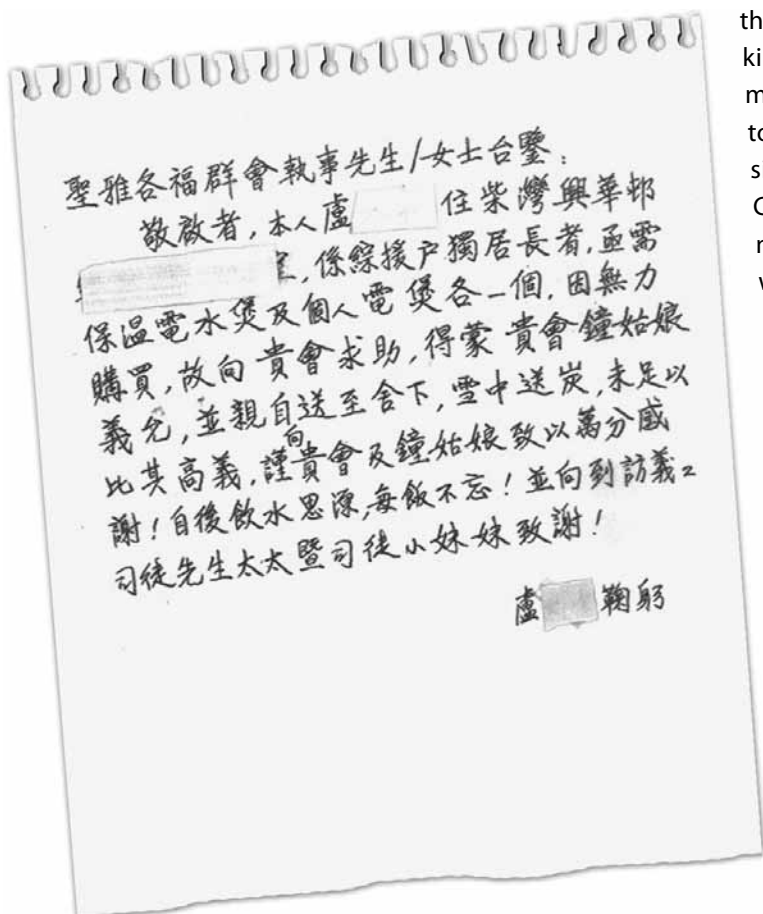 聖雅各福群會執事先生/女士台鑒:
敬啟者,本人盧 住柴灣興華邨
室,係綜援户獨居長者,亟需
保溫電水煲及個人電煲各一個,因無力
購買,故向 貴會求助,得蒙 貴會鐘姑娘
義允,並親自送至舍下,雪中送炭,未足以
比其高義,謹向貴會及鐘姑娘致以萬分感
謝!自後飲水思源,每飯不忘!並向到訪義工
司徒先生太太暨司徒小妹妹致謝!
盧 鞠躬
th
ki
m
to
s